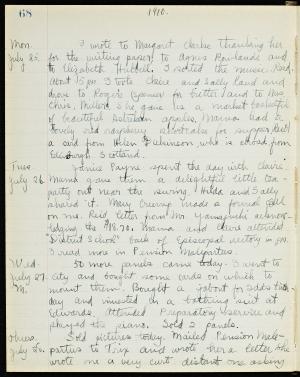 68
1910.
Mon. I wrote to Margaret Clarke thanking her
July 25. for the writing paper to Agnes Rowlands and
to Elizabeth I sorted the music. Red.
about 5 pm. I took Claire and Sally Rand and
drove to Rogers for butter and to Mrs.
Chris. Miller's. She gave us a market basketful
of beautiful apples. Mama had a
lovely red raspberry shortcake for supper. Rec'd
a card from Helen Dickinson who is abroad from
Edinburgh Scotland.
Tues. Janice Payne spent the day with Claire.
July 26. Mama gave them a delightful little tea-
party out near the swing. Hilda and Sally
shared it. Mary Creevy made a formal call
on me. Rec'd letter from Mr. Yamaguchi acknow-
ledging the $18.70. Mama and Claire attended
"District School" back of Episcopal rectory in p.m.
I read more in Pension Malparties.
Wed. Six more panels came today. I went to
July 27. city and bought some cards on which to
M. mount them. Bought a jabot for Sade's birth
day and invested in a bathing suit at
Edwards. Attended Preparatory service and
played the piano. Sold 2 panels.
Thurs. Sold pictures today. Mailed Pension Mal-
July 28. parties to Trix and wrote her a letter. She
wrote me a very curt, distant one asking